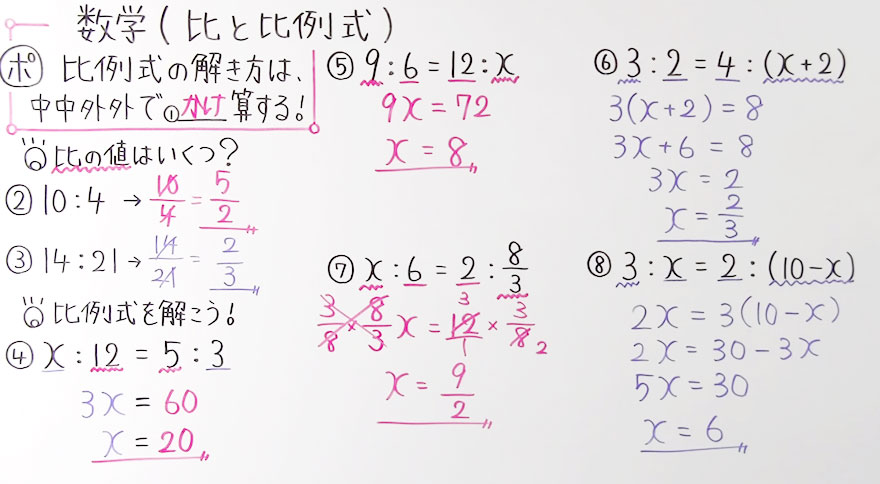 数学(比と比例式)
ポ 比例式の解き方は、
中中外外で①かけ算する!
比の値はいくつ?
② 10:4 → 10/4 = 5/2
③ 14:21 → 14/21 = 2/3
比例式を解こう!
④ x:12 = 5:3
3x = 60
x = 20
⑤ 9:6 = 12:x
9x = 72
x = 8
⑦ x:6 = 2:8/3
3/8 × 8/3 x = 12 3/1 × 3/8 2
x = 9/2
⑥ 3:2 = 4:(x+2)
3(x+2) = 8
3x+6 = 8
3x = 2
x = 2/3
⑧ 3:x = 2:(10-x)
2x = 3(10-x)
2x = 30-3x
5x = 30
x = 6